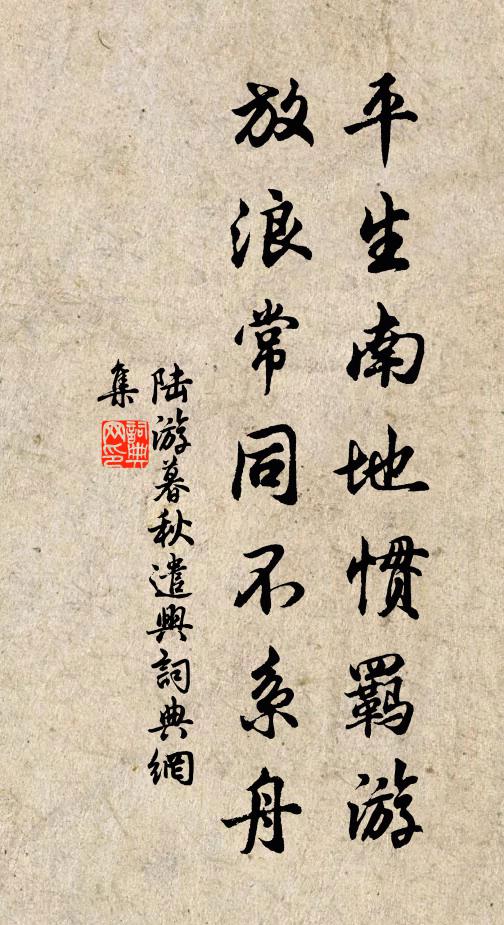 平生南地惯羁游
放浪常同不系舟
陆游暮秋遣興詞典網
集
詞典网印